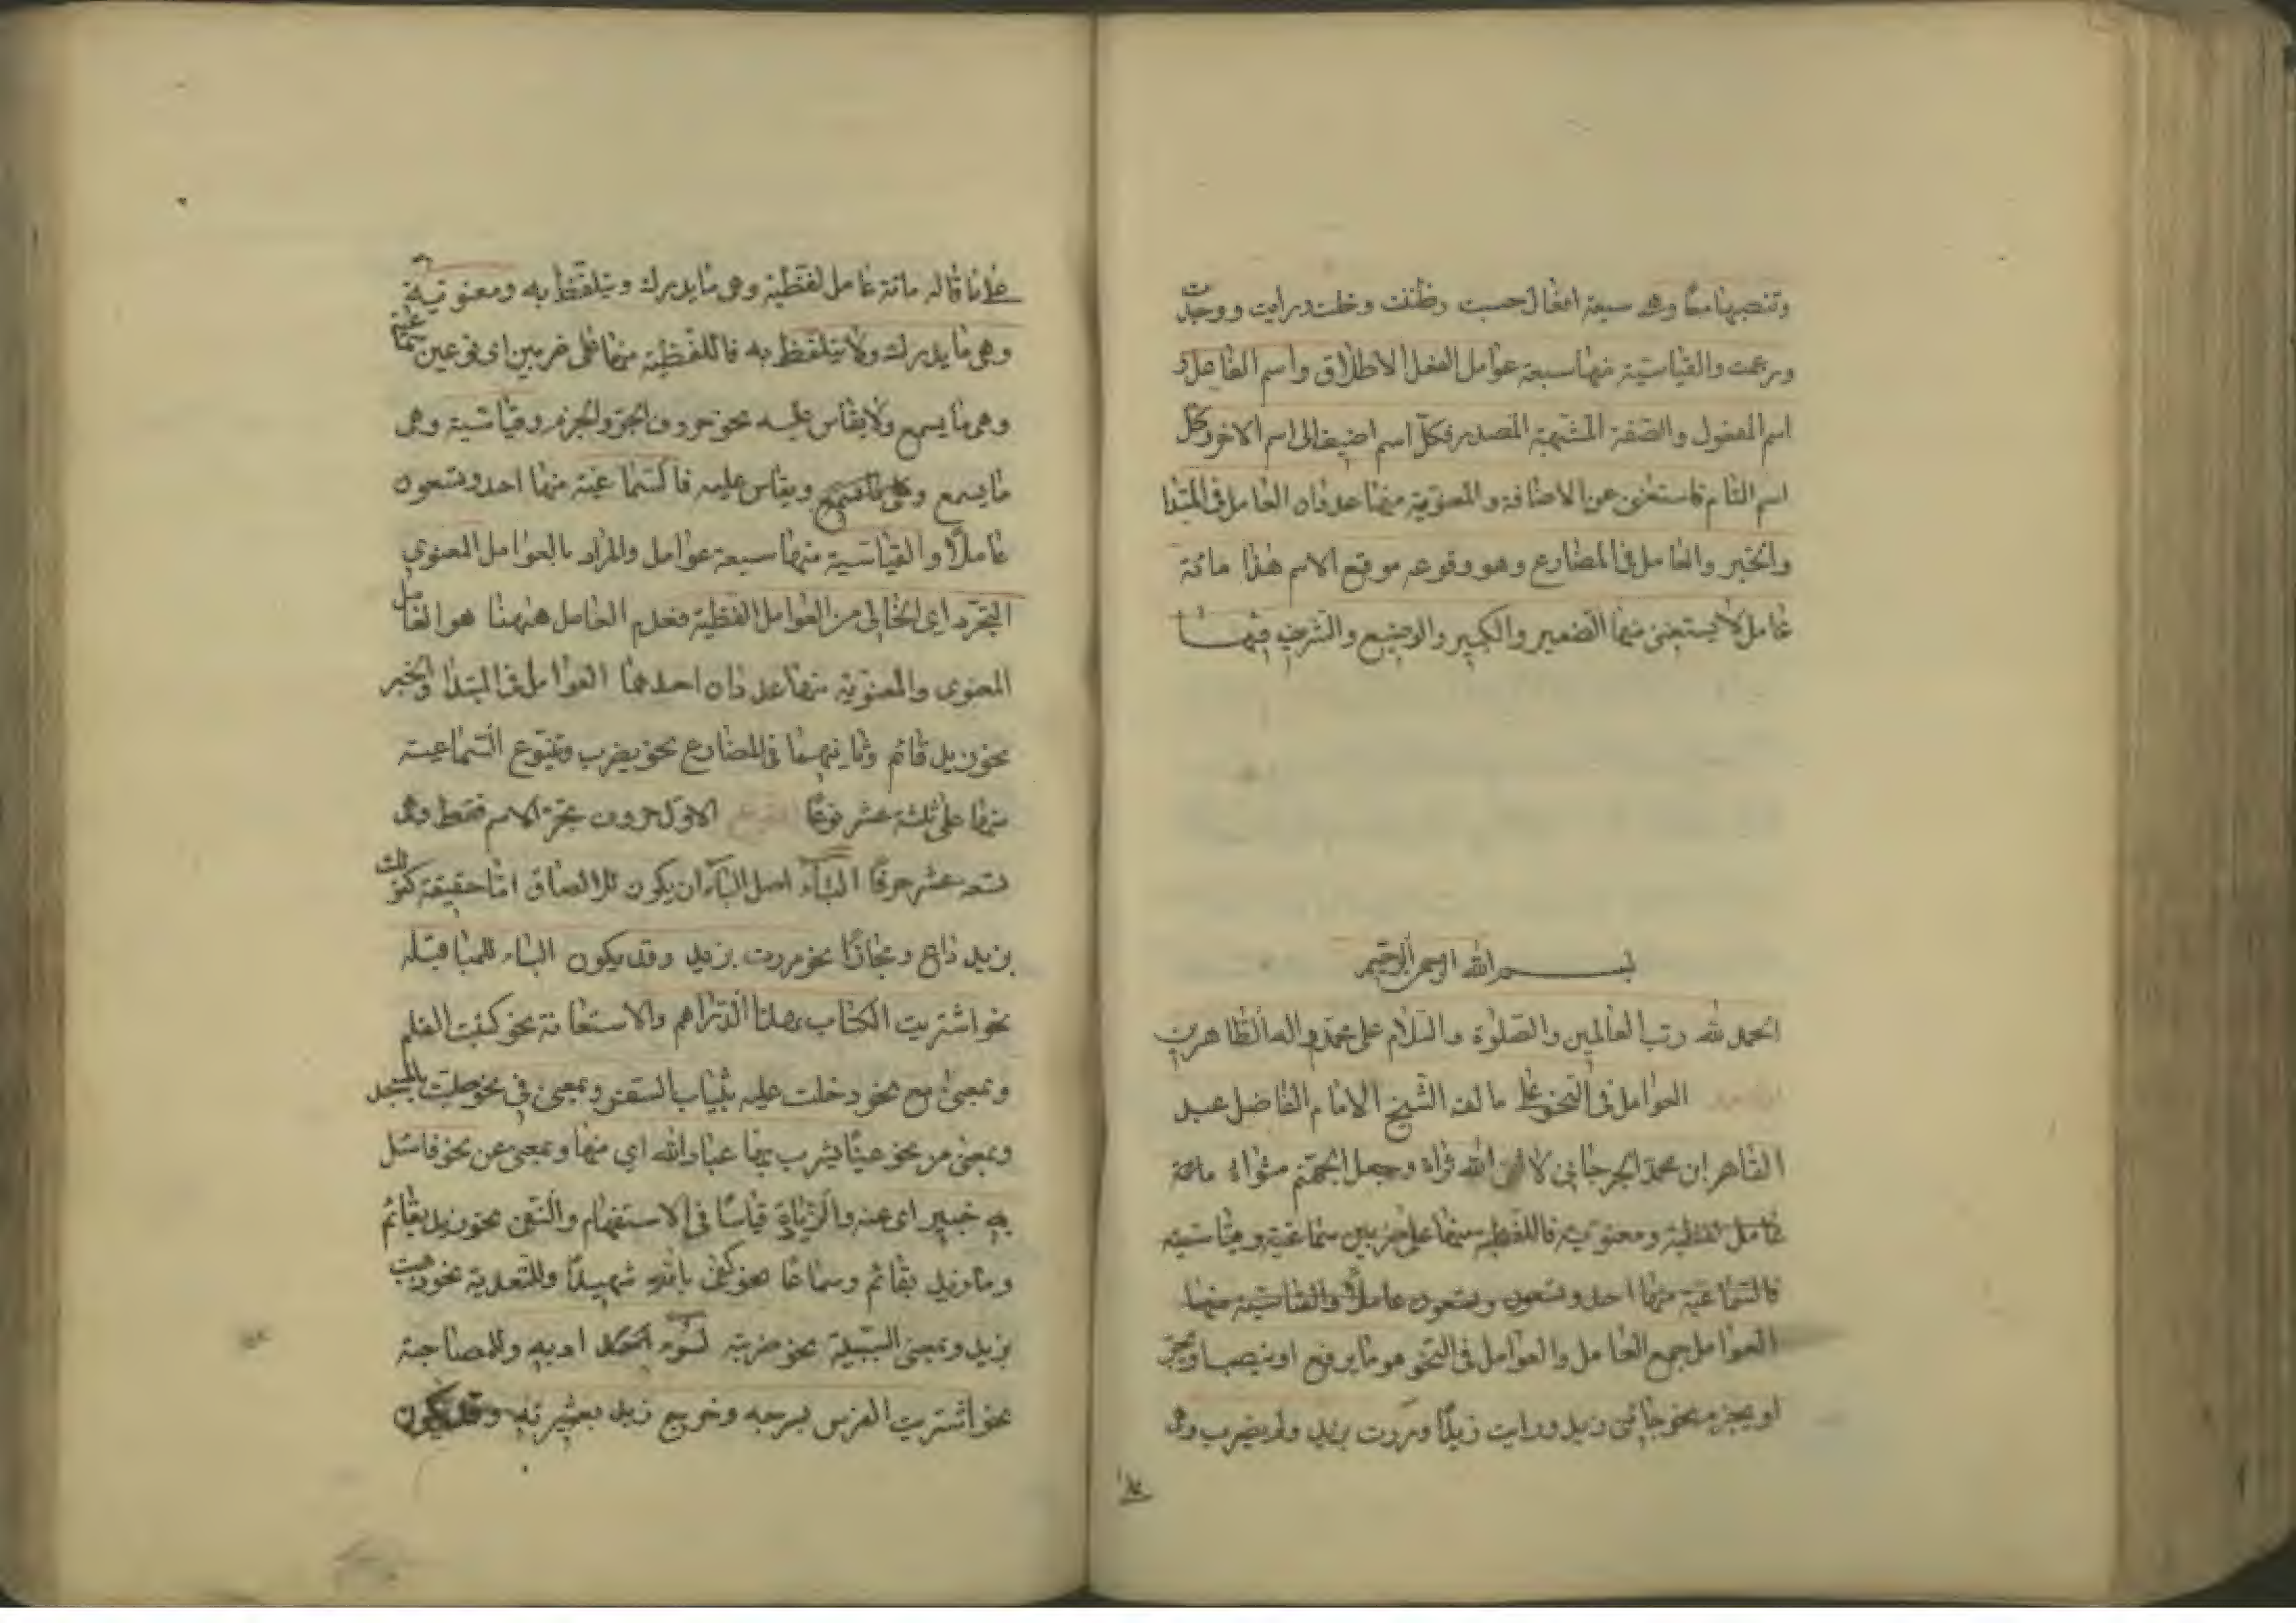 وتنصبهما معًا وهى سبعة افعال حسبت وظننت وخلت ورايت ووجدت
وزعمت والقياسيّة منها سبعة عوامل الفعل الاطلاق واسم الفاعل و
اسم المفعول والصّفة المشبهة المصدر فكلّ اسم اضيف الى اسم الاخر وكل
اسم التام فاستغنى عن الاضافة والمعنويّة منها عددان العامل فى المبتدا
والخبر والعامل فى المضارع وهو وقوعه موقع الاسم هذا مائة
عامل لا يستغنى منها الصغير والكبير والوضيع والشريف فيها
بسم الله الرحمن الرحيم
الحمد لله ربّ العالمين والصّلوة والسّلام على محمّد واله الطّاهرين
العوامل فى النّحو على ما الفه الشّيخ الامام الفاضل عبد
القاهر ابن محمّد الجرجانى الله ثراه وجعل الجهنّم مثواه مائة
عامل لفظية ومعنوية فاللفظية منها على ضربين سماعية وقياسية
فالسّماعيّة منها احد وتسعون وتسعون عاملاً والقياسيّة منها
العوامل جمع العامل والعوامل فى النّحو هو ما يرفع او ينصب او يجرّ
او يجزم نحو جائنى زيد ورايت زيدًا ومررت بزيد ولم يضرب وهى
على
على ما قاله مائة عامل لفظية وهى ما يدرك ويتلفّظ به ومعنويّة
وهى ما يدرك ولا يتلفّظ به فاللفظيّة منها على ضربين اى نوعين سماعية
وهى ما يسمع ولا يقاس عليه نحو حروف الجرّ والجزم وقياسيّة وهى
ما يسمع ويقاس عليه فالسّماعيّة منها احد وتسعون
عاملاً والقياسيّة منها سبعة عوامل والمراد بالعوامل المعنوى
التجرّد اى الخالى من العوامل اللفظيّة فعدم العامل هيهنا هو العامل
المعنوى والمعنويّة منها عددان احدهما العوامل فى المبتدا والخبر
نحو زيد قائم وثانيهما فى المضارع نحو يضرب وتتنوّع السّماعيّة
منها على ثلثة عشر نوعًا النوع الاوّل حروف تجرّ الاسم فقط وهى
تسعة عشر حرفًا البآء اصل البآء ان يكون للالصاق امّا حقيقة كقولك
بزيد داء ومجازًا نحو مررت بزيد وقد يكون الباء للمقابلة
نحو اشتريت الكتاب بهذا الدّراهم والاستعانة نحو كتبت القلم
وبمعنى مع نحو دخلت عليه بثياب السفر وبمعنى فى نحو صليت بالمسجد
وبمعنى من نحو عينًا يشرب بها عباد الله اى منها وبمعنى عن نحو فاسئل
به خبير اى عنه والزّيادة قياسًا فى الاستفهام والنّفى نحو زيد بقائم
وما زيد بقائم وسماعًا نحو كفى بالله شهيدًا وللتّعدية نحو ذهبت
بزيد وبمعنى السّببيّة نحو ضربته لسوء ادبه وللمصاحبة
نحو اشتريت الفرس بسرجه وخرج زيد بعشيرته وقد يكون